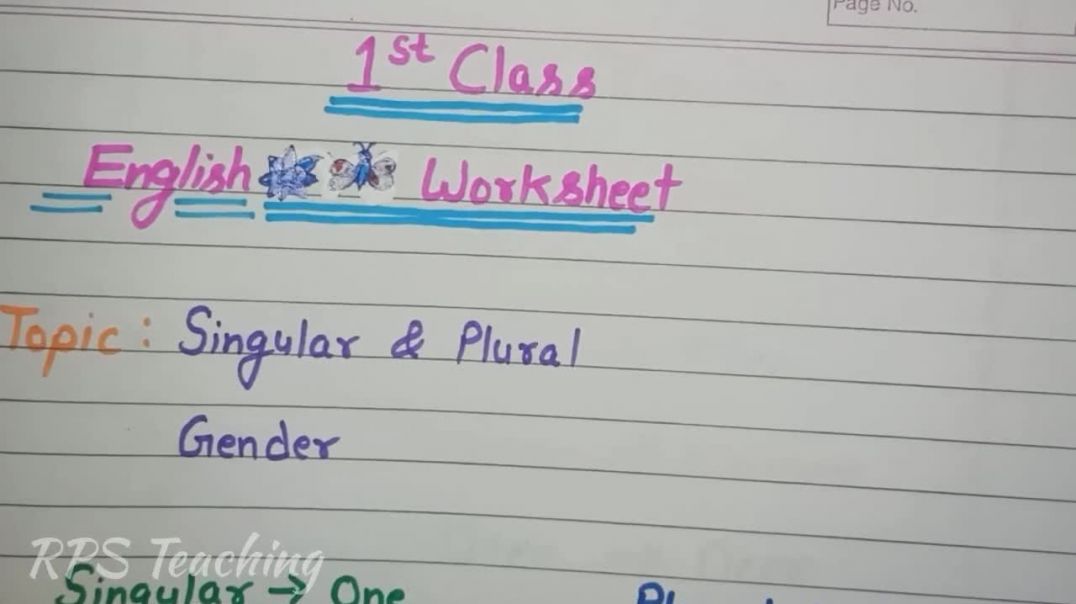 Page No.
1st Class
English Worksheet
Topic: Singular & Plural
Gender
RPS Teaching
Singular → One